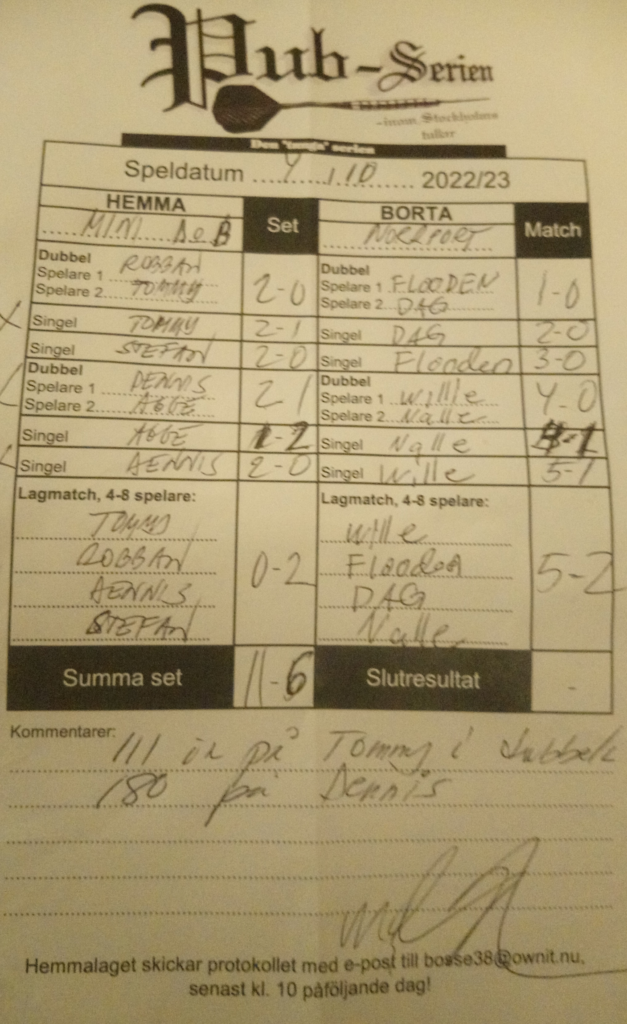 Pub-Serien
-inom Stockholms
tullar
Den "tunga" serien
Speldatum 4 / 10 2022/23
HEMMA Set BORTA Match
MINI DoB NORRPORT
Dubbel Dubbel
Spelare 1 ROBBAN 2-0 Spelare 1 FLOODEN 1-0
Spelare 2 TOMMY Spelare 2 DAG
Singel TOMMY 2-1 Singel DAG 2-0
Singel STEFAN 2-0 Singel Flooden 3-0
Dubbel Dubbel
Spelare 1 DENNIS 2-1 Spelare 1 Wille 4-0
Spelare 2 ABBE Spelare 2 Nalle
Singel ABBE 1-2 Singel Nalle 4-1
Singel DENNIS 2-0 Singel Wille 5-1
Lagmatch, 4-8 spelare: Lagmatch, 4-8 spelare:
TOMMY Wille
ROBBAN 0-2 Flooden 5-2
DENNIS DAG
STEFAN Nalle
Summa set 11-6 Slutresultat -
Kommentarer:
111 in på Tommy i dubbeln
180 på Dennis
Hemmalaget skickar protokollet med e-post till bosse38@ownit.nu,
senast kl. 10 påföljande dag!